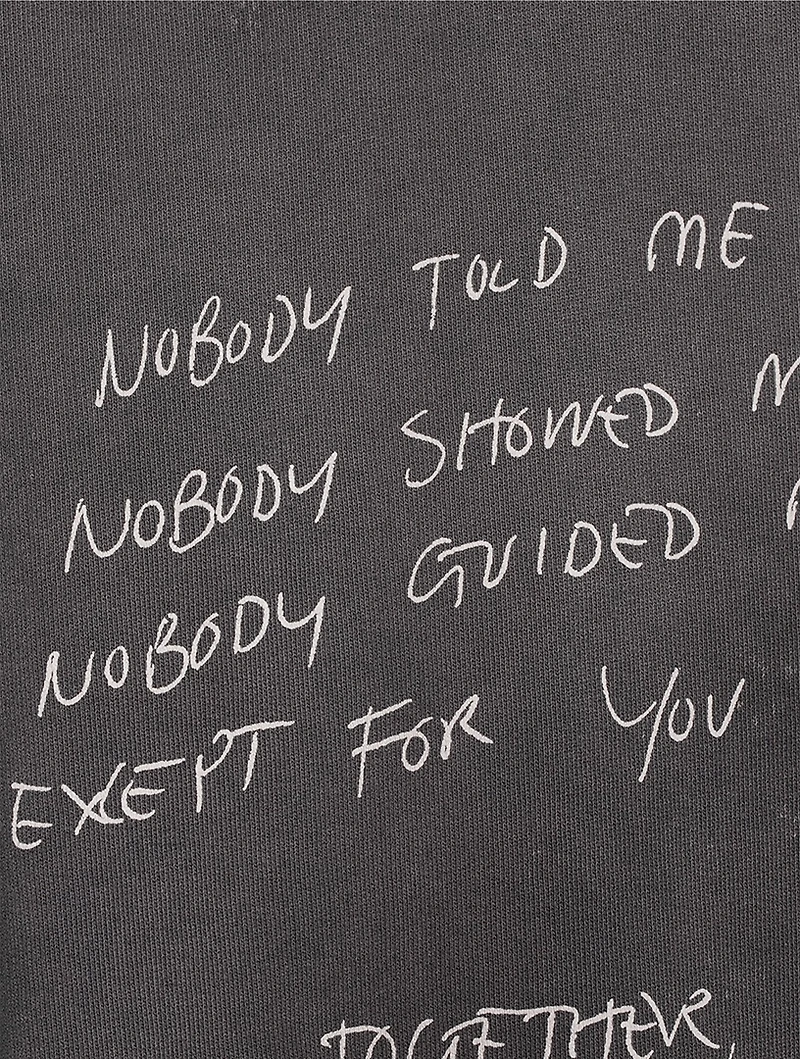 NOBODY TOLD ME
NOBODY SHOWED M
NOBODY GUIDED
EXCEPT FOR YOU
TOGETHER,